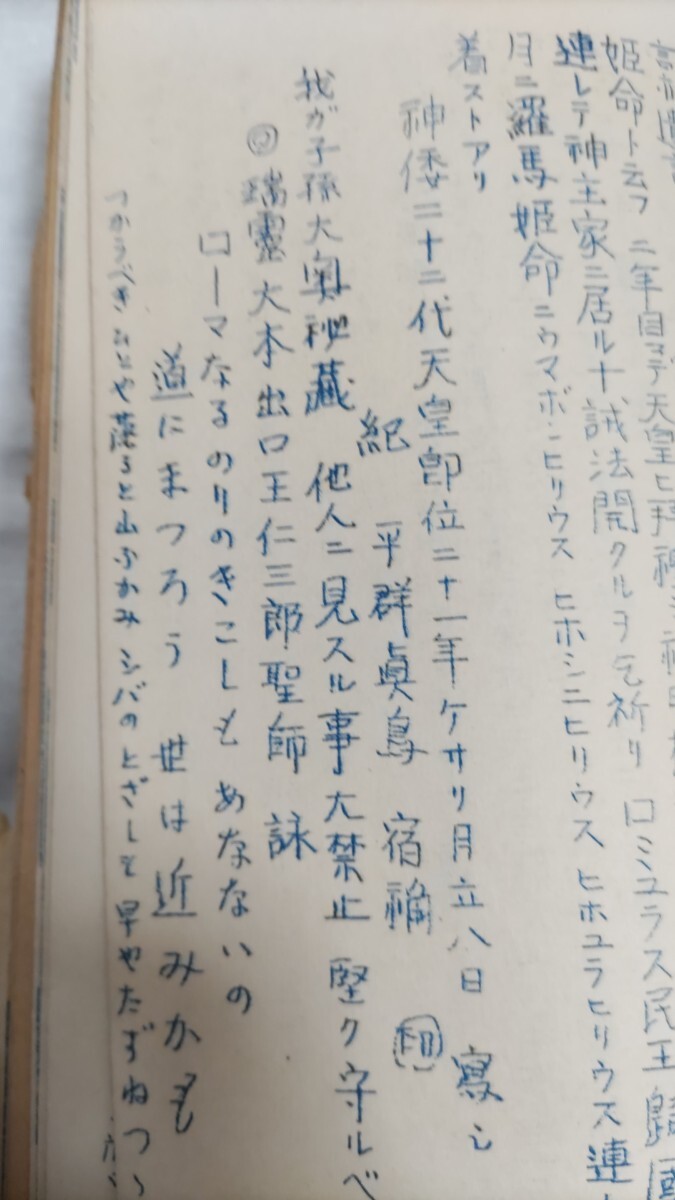 姫命ト云フ 二年目マデ天皇ヒ拝神
連レテ神主家ニ居ル十誡法開クルヲ乞祈リ ロミュラス民王歸國
月ニ羅馬姫命ニウマボンヒリウス ヒホシニヒリウス ヒホユラヒリウス連
着ストアリ
神倭二十二代天皇即位二十一年ケサリ月立八日 寫し
紀 平群眞鳥 宿禰 印
我ガ子孫大奥秘藏 他人ニ見スル事大禁止 堅ク守ルベ
瑞靈大本出口王仁三郎聖師 詠
ローマなるのりのきこしもあなないの
道にまつろう 世は近みかも
つかうべきひとや落ると山ふかみシバのとざしも早やたずねつゝ